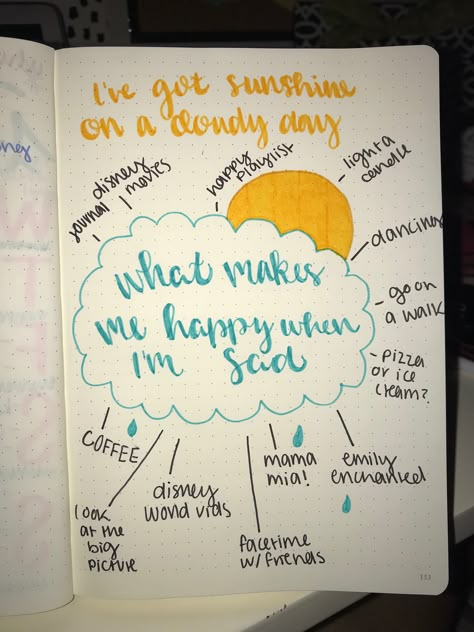 I've got sunshine
on a cloudy day
journal
disney
movies
happy
playlist
light a
candle
dancing
go on
a walk
pizza
or ice
cream?
what makes
me happy when
I'm sad
COFFEE
look
at the
big
picture
disney
world vids
facetime
w/ friends
mama
mia!
emily
enchanted
ney